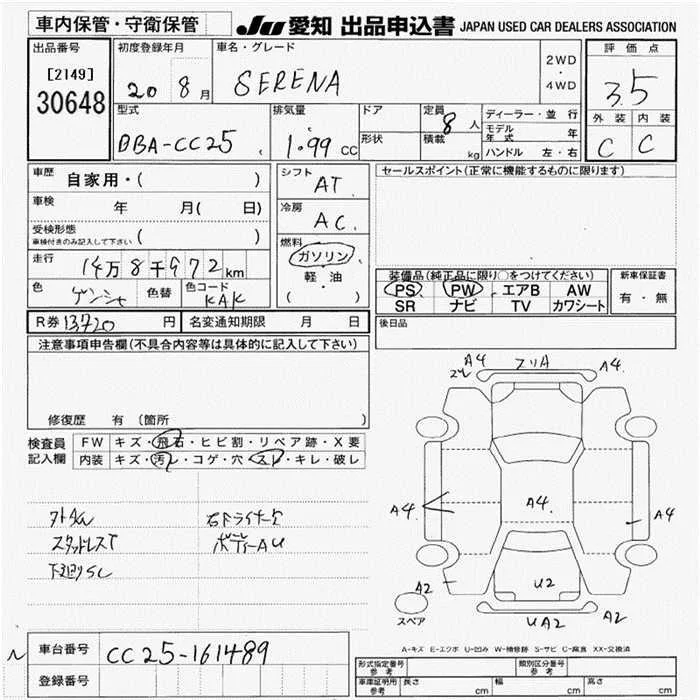 車内保管・守衛保管
JU 愛知 出品申込書 JAPAN USED CAR DEALERS ASSOCIATION
出品番号
[2149]
30648
初度登録年月
20 8月
車名・グレード
SERENA
2WD
・
4WD
評価点
3.5
外装 内装
C C
型式
DBA-CC25
排気量
1.99 CC
ドア
形状
定員 8 人
積載 kg
ディーラー・並行
モデル年式 年
ハンドル 左・右
車歴 自家用・( )
車検 年 月( 日)
受検形態
車検付きのみ記入して下さい ( )
走行 14万8千972km
色 ゲンシャ 色替 色コード KAK
シフト AT
冷房 AC
燃料
ガソリン
・
軽・油
( )
セールスポイント(正常に機能するものに限ります)
装備品(純正品に限り○をつけてください)
PS PW エアB AW
SR ナビ TV カワシート
新車保証書
有・無
後日品
R券 13720 円 名変通知期限 月 日
注意事項申告欄(不具合内容等は具体的に記入して下さい)
修復歴 有 (箇所 )
検査員記入欄
FW キズ・飛石・ヒビ割・リペア跡・X要
内装 キズ・汚レ・コゲ・穴・スレ・キレ・破レ
スタッドレスT
ボディーAU
下廻りSL
A4 A4
A4 A4 A4
A2 U2
UA2 A2
スペア
A-キズ E-エクボ U-凹み W-補修跡 S-サビ C-腐食 XX-交換済
車台番号 CC25-161489
登録番号
形式指定番号 参考 類別区分番号 参考
車庫証明用 参考 長さ cm 幅 cm 高さ cm